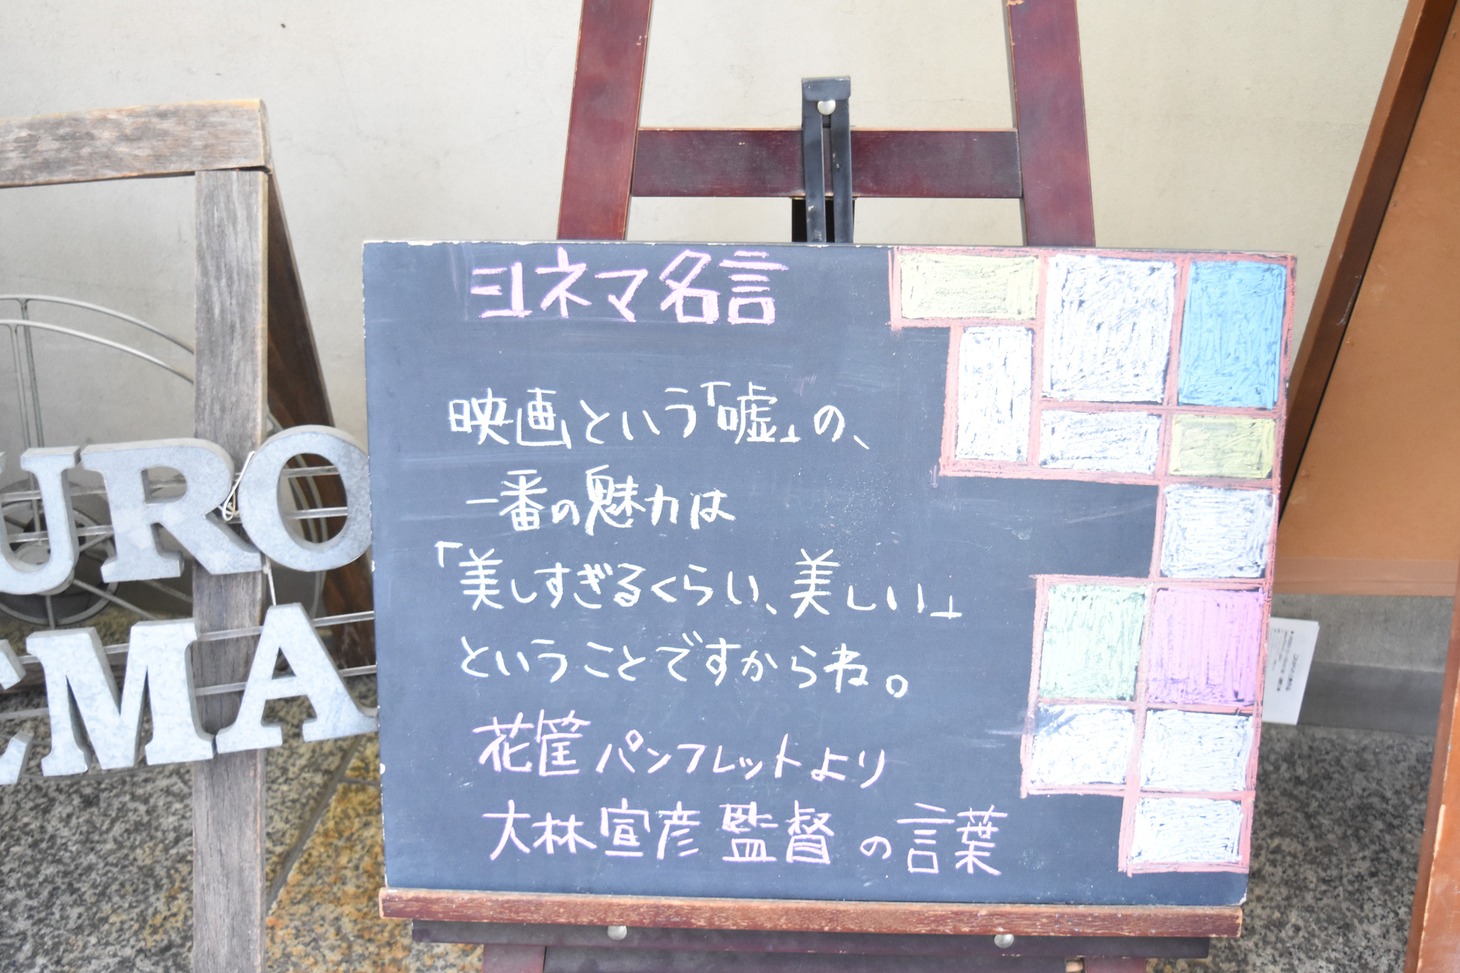 ヨネマ名言
映画という「嘘」の、
一番の魅力は
「美しすぎるくらい、美しい」
ということですからね。
花筐パンフレットより
大林宣彦監督の言葉
URO
EMA